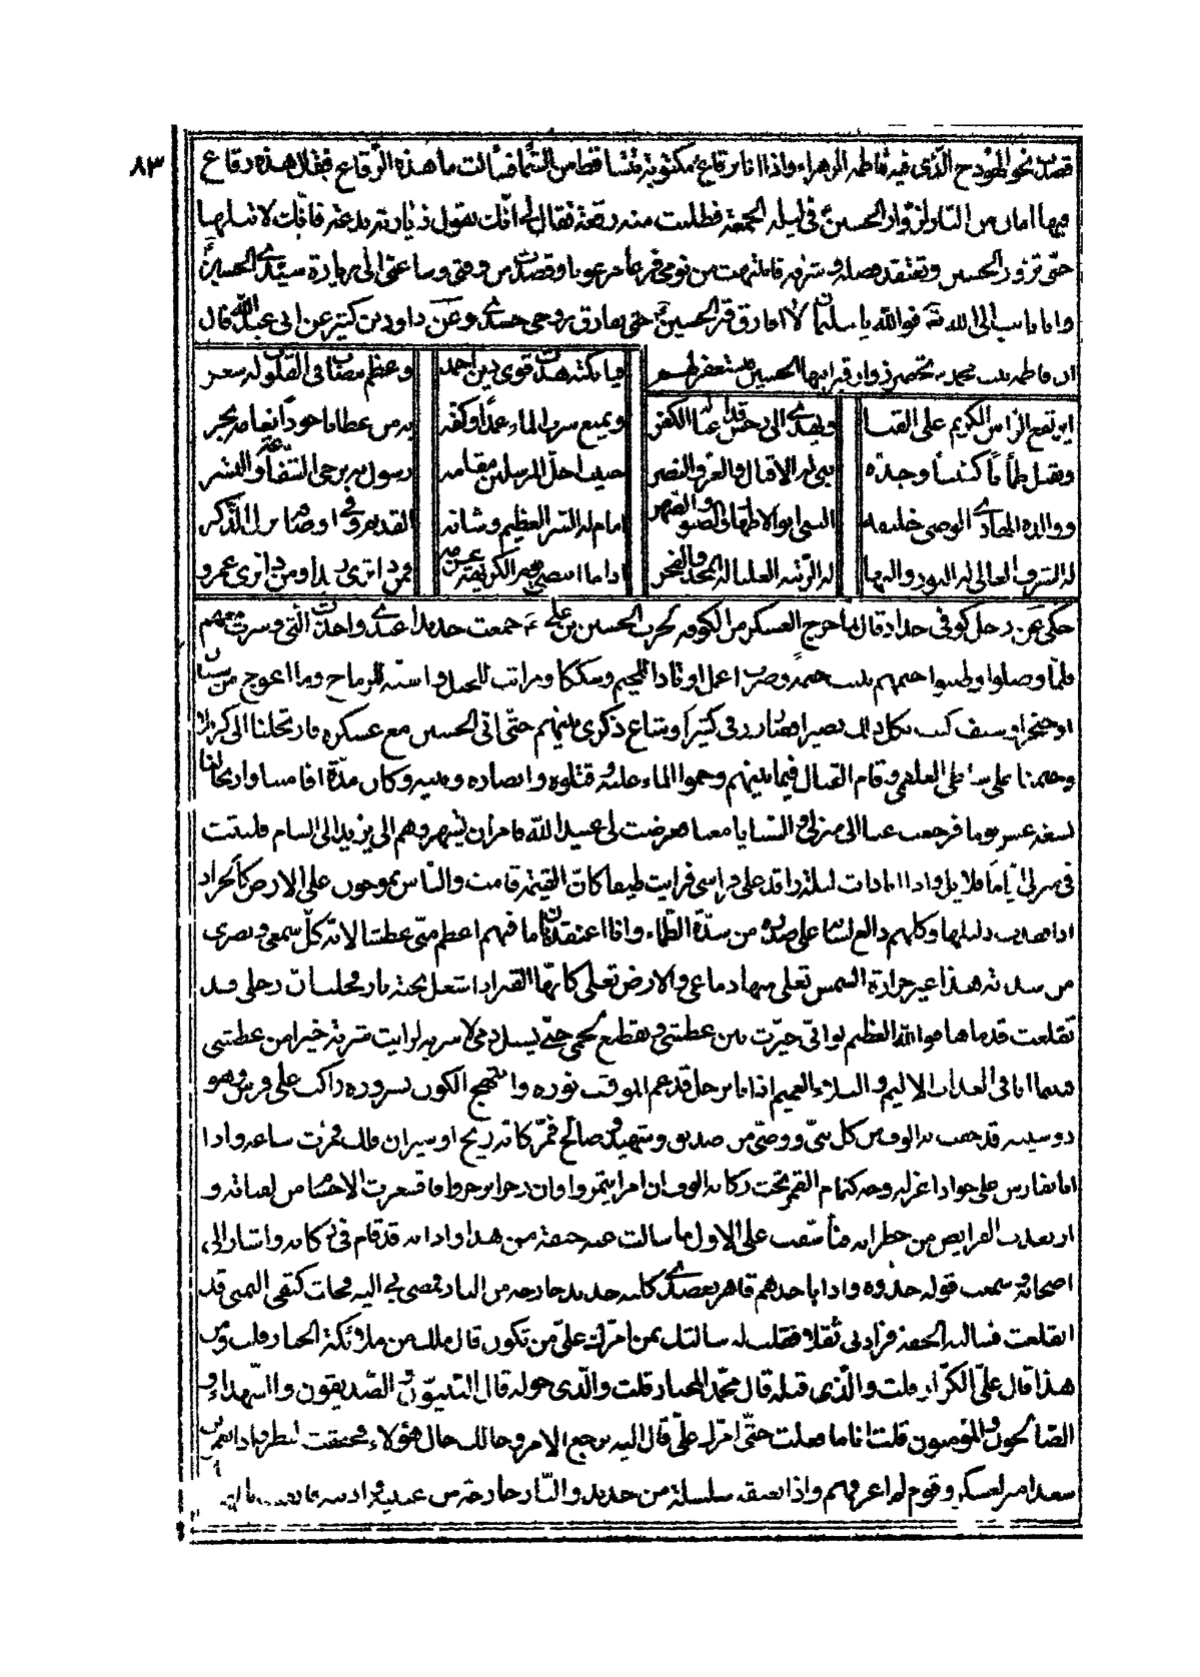 ٨٣
قصدت نحو الهودج الذي فيه فاطمه الزهراء واذا انا برقاع مكتوبة تتساقط من السما فسألت ما هذه الرقاع فقال هذه رقاع
فيها امان من النار لزوار الحسين في ليله الجمعة فطلبت منه رقعة فقال لي انك تقول زيارته بدعة فانك لا تنالها
حتى تزور الحسين وتعتقد فضله وشرفه فانتبهت من نومي فزعا مرعوبا وقصدت من وقتي وساعتي الى زيارة سيدي الحسين
وانا تايب الى الله فوالله يا سليمان لا افارق قبر الحسين حتى يفارق روحي جسدي وعن داود بن كثير عن ابي عبد الله قال
ان فاطمه بنت محمد تحضر زوار قبر ابنها الحسين فتستغفر لهم
فيا نكبة هدت قوى دين احمد وعظم مصاب في القلوب له سعر
ايرفع الراس الكريم على القنا ويهدى الى رجس قد غاله الكفر
ويمنع شرب الماء عمدا وكفه به من عطايا جودانعامه بحر
ويقتل ظمأنا كئيبا وجده نبي له الاقبال والعز والنصر
حبيب احل المرسلين مقامه رسول به يرجى الشفاعة والبشر
ووالده الهادي الوصي خليفه النبي ابو الاطهار والصنو والصهر
امام له السر العظيم وشانه القديم وفي اوصافه نزل الذكر
له الشرف العالي له النور والبها له الرتبه العليا له المجد والفخر
اذا ما انتمى يوم الكريهة عن من ترى زيدا ومن ترى عمرو
حكي عن رجل كوفي حداد قال لما خرج العسكر من الكوفه لحرب الحسين بن علي جمعت حديدا عندي واخذت التي وسرت معهم
فلما وصلوا وطنبوا خيمهم بنيت خيمة وصرت اعمل اوتادا للخيم وسككا ومرابط للخيل واسنة للرماح وما اعوج من سنان
او خنجر او سيف كنت بكل ذلك بصيرا فصار رزقي كثيرا وشاع ذكري بينهم حتى اتى الحسين مع عسكره فارتحلنا الى كربلا
وخيمنا على شاطي العلقمي وقام القتال فيما بينهم وحموا الماء عليه وقتلوه وانصاره وبنيه وكان مدة اقامتنا وارتحالنا
تسعة عشر يوما فرجعت غنيا الى منزلي والسبايا معنا فعرضت لي عبيد الله فامر ان يشهروهم الى يزيد الى الشام فلبثت
في منزلي اياما قلايل واذا انا ذات ليلة راقد على فراشي فرايت طيفا كان القيمة قامت والناس يموجون على الارض كالجراد
اذا فقدت دليلها وكلهم دالع لسانه على صدره من شدة الظماء وانا اعتقد بان ما فيهم اعظم مني عطشا لانه كل سمعي وبصري
من شدته هذا غير حرارة الشمس تغلي منها دماغي والارض تغلي كانها القير اذا اشتعل تحته نار فخلت ان رجلي قد
تقلعت قدماها فوالله العظيم لو اني خيرت بين عطشي وتقطيع لحمي حتى يسيل دمي لاشربه لرايت شربه خيرا من عطشي
فبينما انا في العذاب الاليم والبلاء العميم اذا انا برجل قد عم الموقف نوره وابتهج الكون بسروره راكب على فرس وهو
ذو شيبه قد حفت به الوف من كل نبي ووصي من صديق وشهيد وصالح فمر كانه ريح او سيران فلك فمرت ساعه واذا
انا بفارس على جواد اغر له وجه كتمام القمر تحت ركابه الوف ان امر ايتمروا وان زجر انزجروا فاقشعرت الاجسام من لفتاته و
ارتعدت الفرايص من خطراته فتأسفت على الاول ما سالت عنه خيفة من هذا واذا به قد قام في ركابه واشار الى
اصحابه وسمعت قوله خذوه واذا باحدهم قاهر بعضدي كلبه حديد خارجه من النار فمضى بي اليه فخلت كتفي اليمنى قد
انقلعت فسالته الخفة فزادني ثقلا فقلت له سالتك بمن امرك علي من تكون قال ملك من ملائكة الجبار قلت ومن
هذا قال علي الكرار قلت والذي قبله قال محمد المختار قلت والذي حوله قال النبيون والصديقون والشهداء و
الصالحون والمؤمنون قلت انا ما فعلت حتى امرك علي قال اليه يرجع الامر وحالك حال هؤلاء فحققت النظر واذا بعمر بن
سعد امير العسكر وقوم لم اعرفهم واذا بعنقه سلسلة من حديد والنار خارجة من عينيه واذنيه